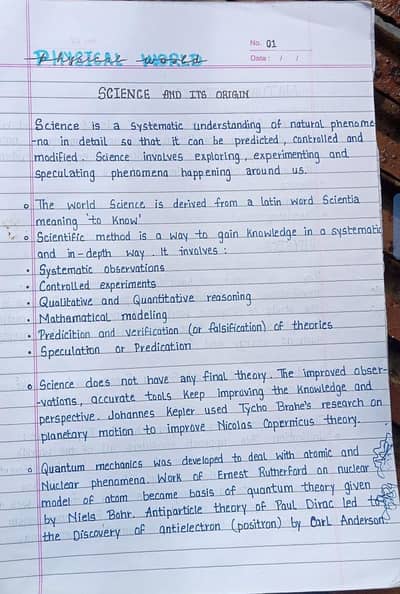 No. 01
PHYSICAL WORLD
Date: / /
SCIENCE AND ITS ORIGIN
Science is a systematic understanding of natural phenome
-na in detail so that it can be predicted, controlled and
modified. Science involves exploring, experimenting and
speculating phenomena happening around us.
o The world Science is derived from a latin word Scientia
meaning 'to know'
o Scientific method is a way to gain knowledge in a systematic
and in-depth way. It involves :
• Systematic observations
• Controlled experiments
• Qualitative and Quantitative reasoning
• Mathematical modeling
• Predicition and verification (or falsification) of theories
• Speculation or Predication
o Science does not have any final theory. The improved obser-
-vations, accurate tools keep improving the knowledge and
perspective. Johannes Kepler used Tycho Brahe's research on
planetary motion to improve Nicolas Copernicus theory.
o Quantum mechanics was developed to deal with atomic and
Nuclear phenomena. Work of Ernest Rutherford on nuclear
model of atom became basis of quantum theory given
by Niels Bohr. Antiparticle theory of Paul Dirac led to
the Discovery of antielectron (positron) by Carl Anderson